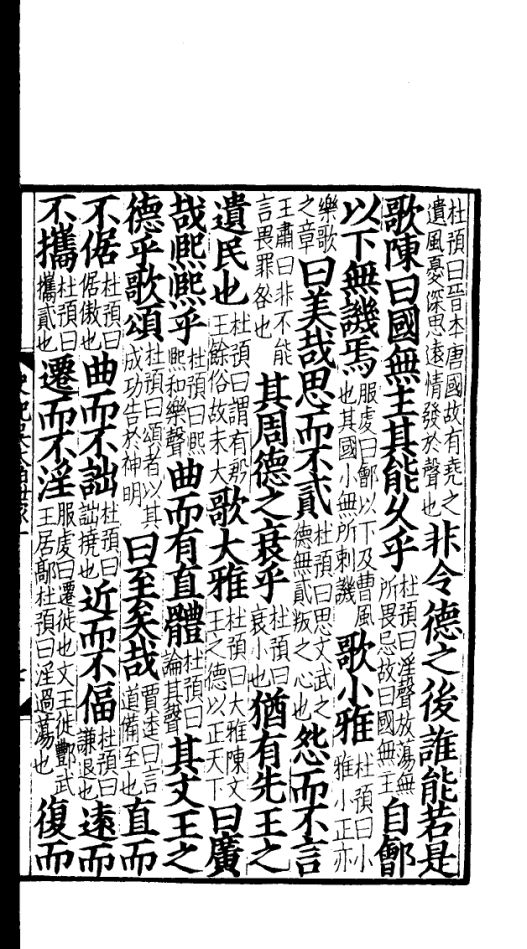 杜預曰晉本唐國故有堯之遺風憂深思遠情發於聲也非令德之後誰能若是
歌陳曰國無主其能久乎杜預曰淫聲放蕩無所畏忌故曰國無主自鄶
以下無譏焉服虔曰鄶以下及曹風也其國小無所刺譏歌小雅杜預曰小雅小正亦
樂歌之章曰美哉思而不貳杜預曰思文武之德無貳叛之心也怨而不言
王肅曰非不能言畏罪咎也其周德之衰乎杜預曰衰小也猶有先王之
遺民也杜預曰謂有殷王餘俗故未大歌大雅杜預曰大雅陳文王之德以正天下曰廣
哉熙熙乎杜預曰熙熙和樂聲曲而有直體杜預曰論其聲其文王之
德乎歌頌杜預曰頌者以其成功告於神明曰至矣哉賈逵曰言道備至也直而
不倨杜預曰倨傲也曲而不詘杜預曰詘撓也近而不偪杜預曰謙退也遠而
不攜杜預曰攜貳也遷而不淫服虔曰遷徙也文王徙酆武王居鄗杜預曰淫過蕩也復而